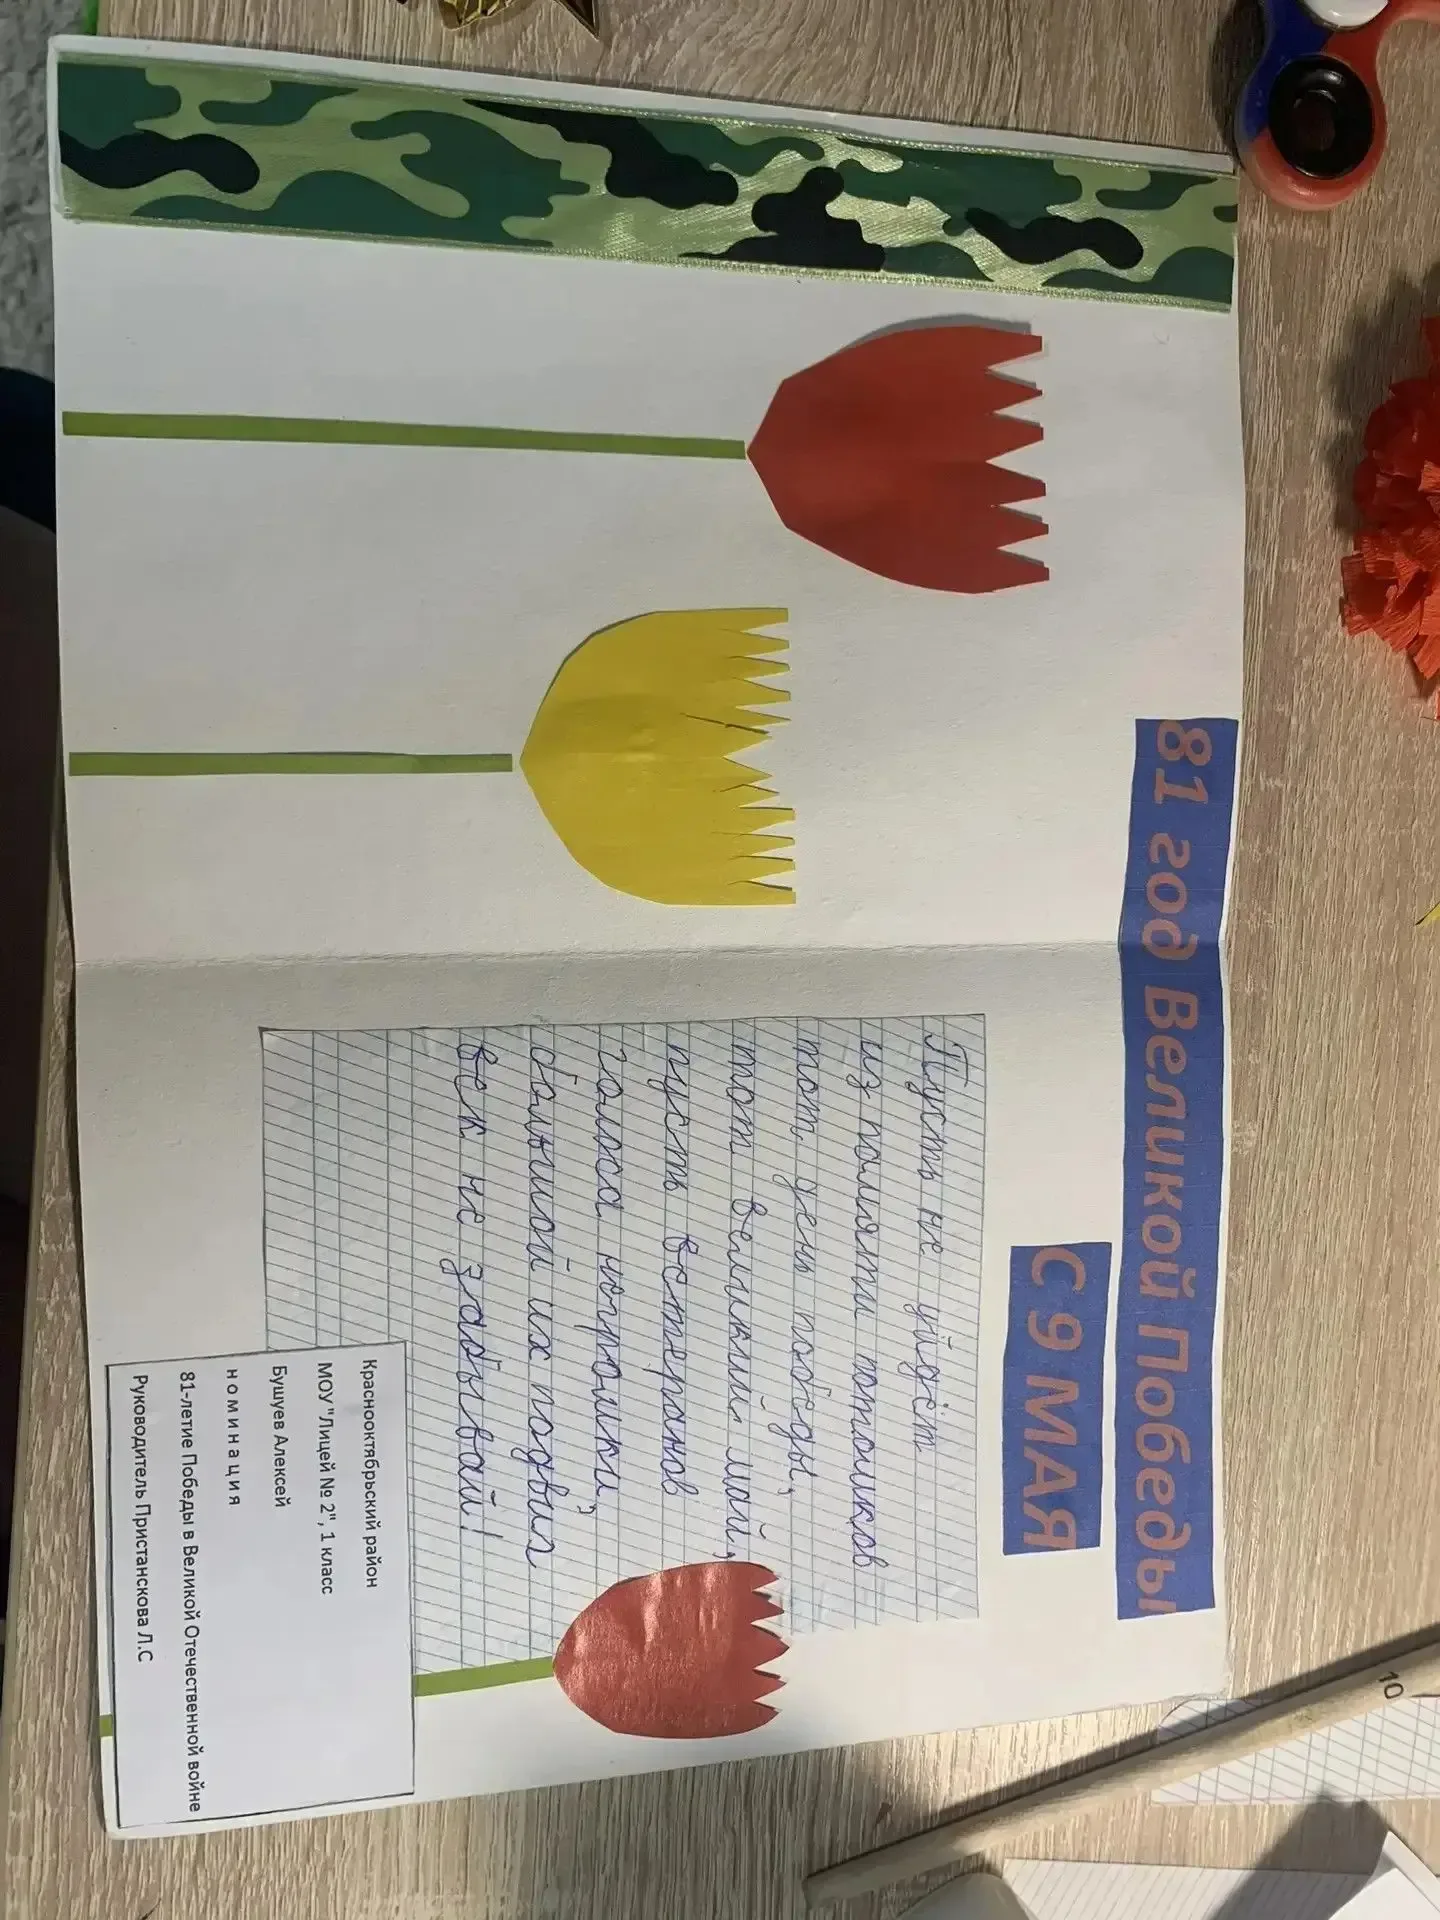 81 год Великой Победы
С 9 МАЯ
Пусть не уйдёт
из памяти потомков
тот день победы,
тот великий май,
пусть ветеранов
голоса негромки,
большой их подвиг
век не забывай!
Краснооктябрьский район
МОУ "Лицей № 2", 1 класс
Бушуев Алексей
н о м и н а ц и я
81-летие Победы в Великой Отечественной войне
Руководитель Пристанскова Л.С
10